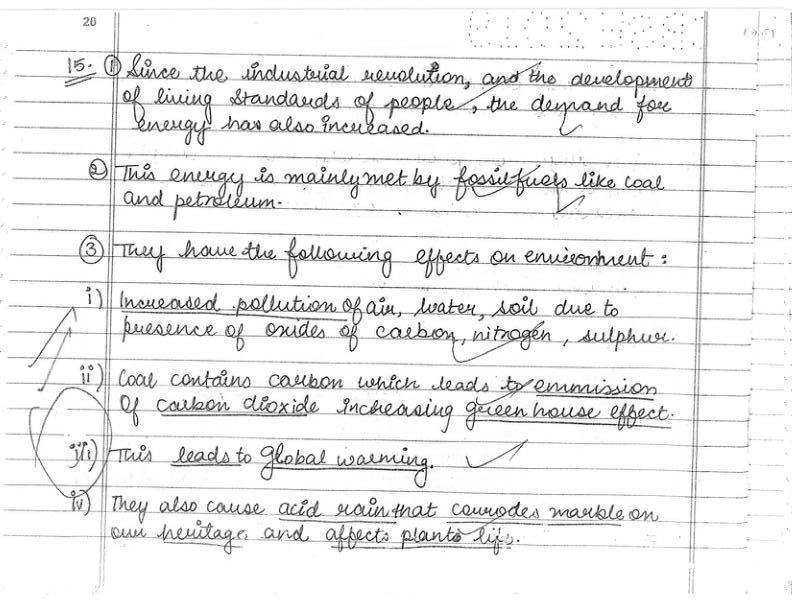 20
15. ① Since the industrial revolution, and the development
of living standards of people, the demand for
energy has also increased.
② This energy is mainly met by fossil fuels like coal
and petroleum.
③ They have the following effects on environment :
i) Increased pollution of air, water, soil due to
presence of oxides of carbon, nitrogen, sulphur.
ii) Coal contains carbon which leads to emmission
of carbon dioxide increasing green house effect.
iii) This leads to global warming.
iv) They also cause acid rain that corrodes marble on
our heritage and affects plants life.